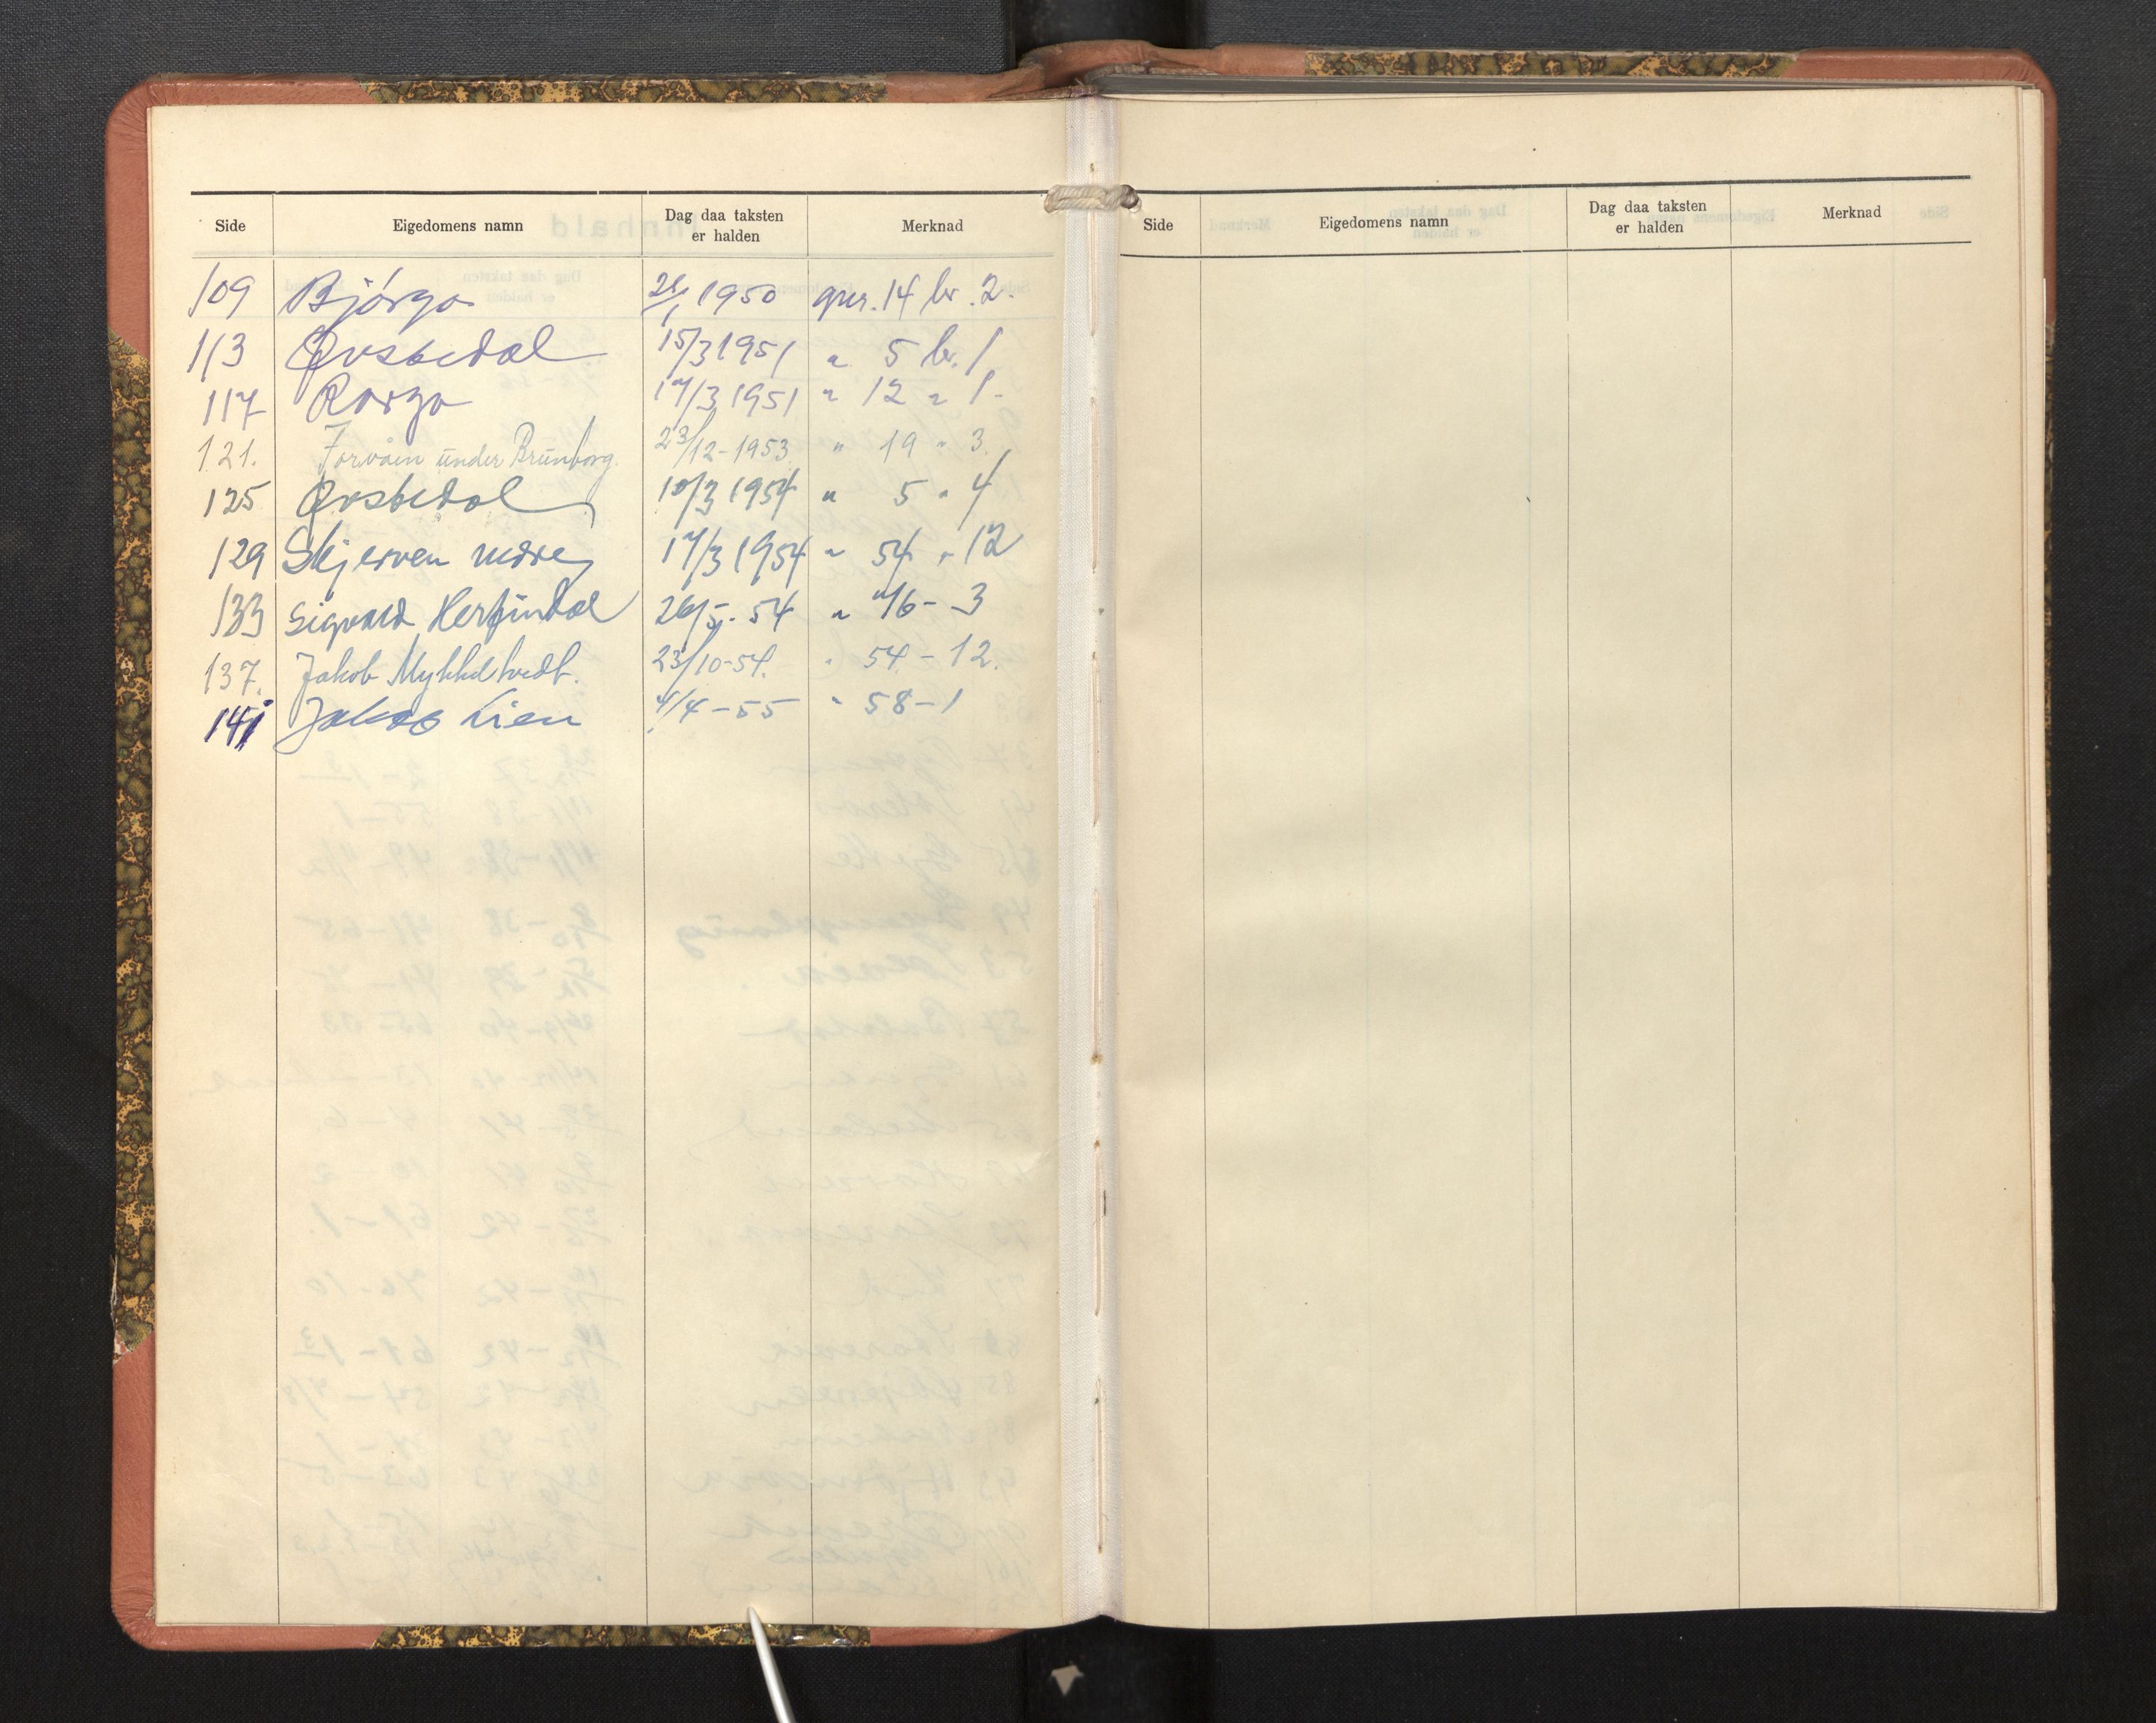 Side Eigedomens namn Dag daa taksten er halden Merknad
109 Bjørgo 1950 gnr. 14 br. 2.
113 Øvstedal 15/3 1951 " 5 br. 1
117 Rørgo 17/3 1951 " 12 " 1-
121. under Brunborg. 23/12-1953 " 19 " 3.
125 Øvstedal 10/3 1954 " 5 " 4
129 Skjerven nedre 17/3 1954 " 54 " 12
133 Sigvald Herfindal 26/5-54 " 76-3
137. Jakob Mykkeltvedt. 23/10-54. " 54-12.
141 Jakob Lien 4/4-55 " 58-1
Side Eigedomens namn Dag daa taksten er halden Merknad